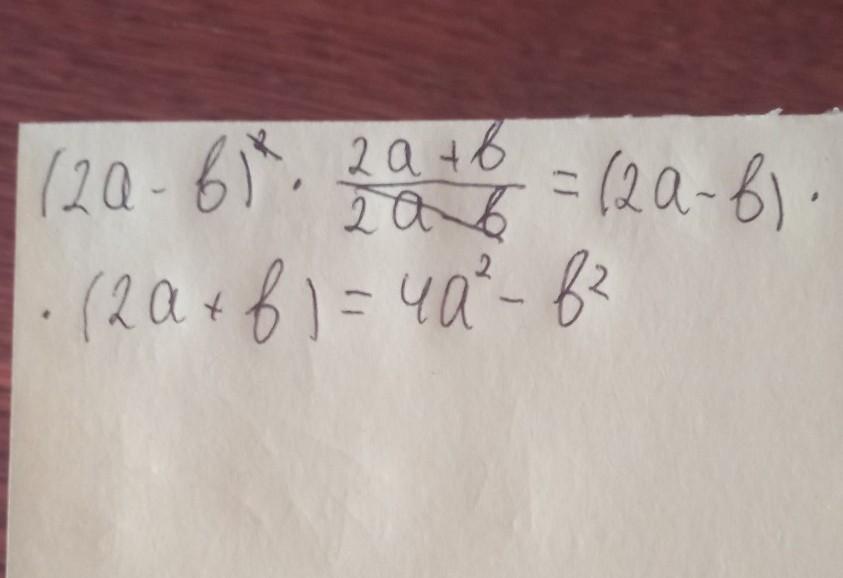 (2a - b)² · (2a + b)/(2a - b) = (2a - b) ·
· (2a + b) = 4a² - b²